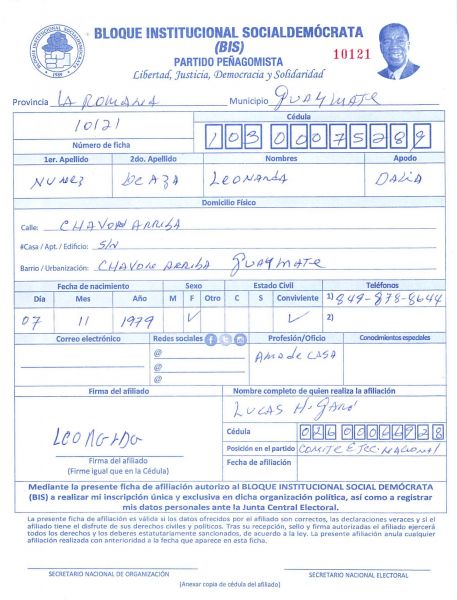 BLOQUE INSTITUCIONAL SOCIALDEMÓCRATA
(BIS)
PARTIDO PEÑAGOMISTA
Libertad, Justicia, Democracia y Solidaridad
10121
Provincia LA ROMANA Municipio GUAYMATE
10121
Número de ficha
Cédula
10300075289
1er. Apellido 2do. Apellido Nombres Apodo
NUNEZ DE AZA LEONARDA DALIA
Domicilio Físico
Calle: CHAVON ARRIBA
#Casa / Apt. / Edificio: S/N
Barrio / Urbanización: CHAVON ARRIBA GUAYMATE
Fecha de nacimiento Sexo Estado Civil Teléfonos
Día Mes Año M F Otro C S Conviviente 1) 849-878-8644
07 11 1979 ✓ ✓ 2)
Correo electrónico Redes sociales Profesión/Oficio Conocimientos especiales
@ AMA de CASA
@
@
Firma del afiliado Nombre completo de quien realiza la afiliación
LUCAS H.
Cédula
Posición en el partido COMITE EJEC. NACIONAL
Fecha de afiliación
Firma del afiliado
(Firme igual que en la Cédula)
Mediante la presente ficha de afiliación autorizo al BLOQUE INSTITUCIONAL SOCIAL DEMÓCRATA
(BIS) a realizar mi inscripción única y exclusiva en dicha organización política, así como a registrar
mis datos personales ante la Junta Central Electoral.
La presente ficha de afiliación es válida si los datos ofrecidos por el afiliado son correctos, las declaraciones veraces y si el
afiliado tiene el disfrute de sus derechos civiles y políticos. Tras su recepción, sello y firma autorizadas el afiliado ejercerá
todos los derechos y los deberes estatutariamente sancionados, de acuerdo a la ley. La presente afiliación anula cualquier
afiliación realizada con anterioridad a la fecha que aparece en esta ficha.
SECRETARIO NACIONAL DE ORGANIZACIÓN SECRETARIO NACIONAL ELECTORAL
(Anexar copia de cédula del afiliado)